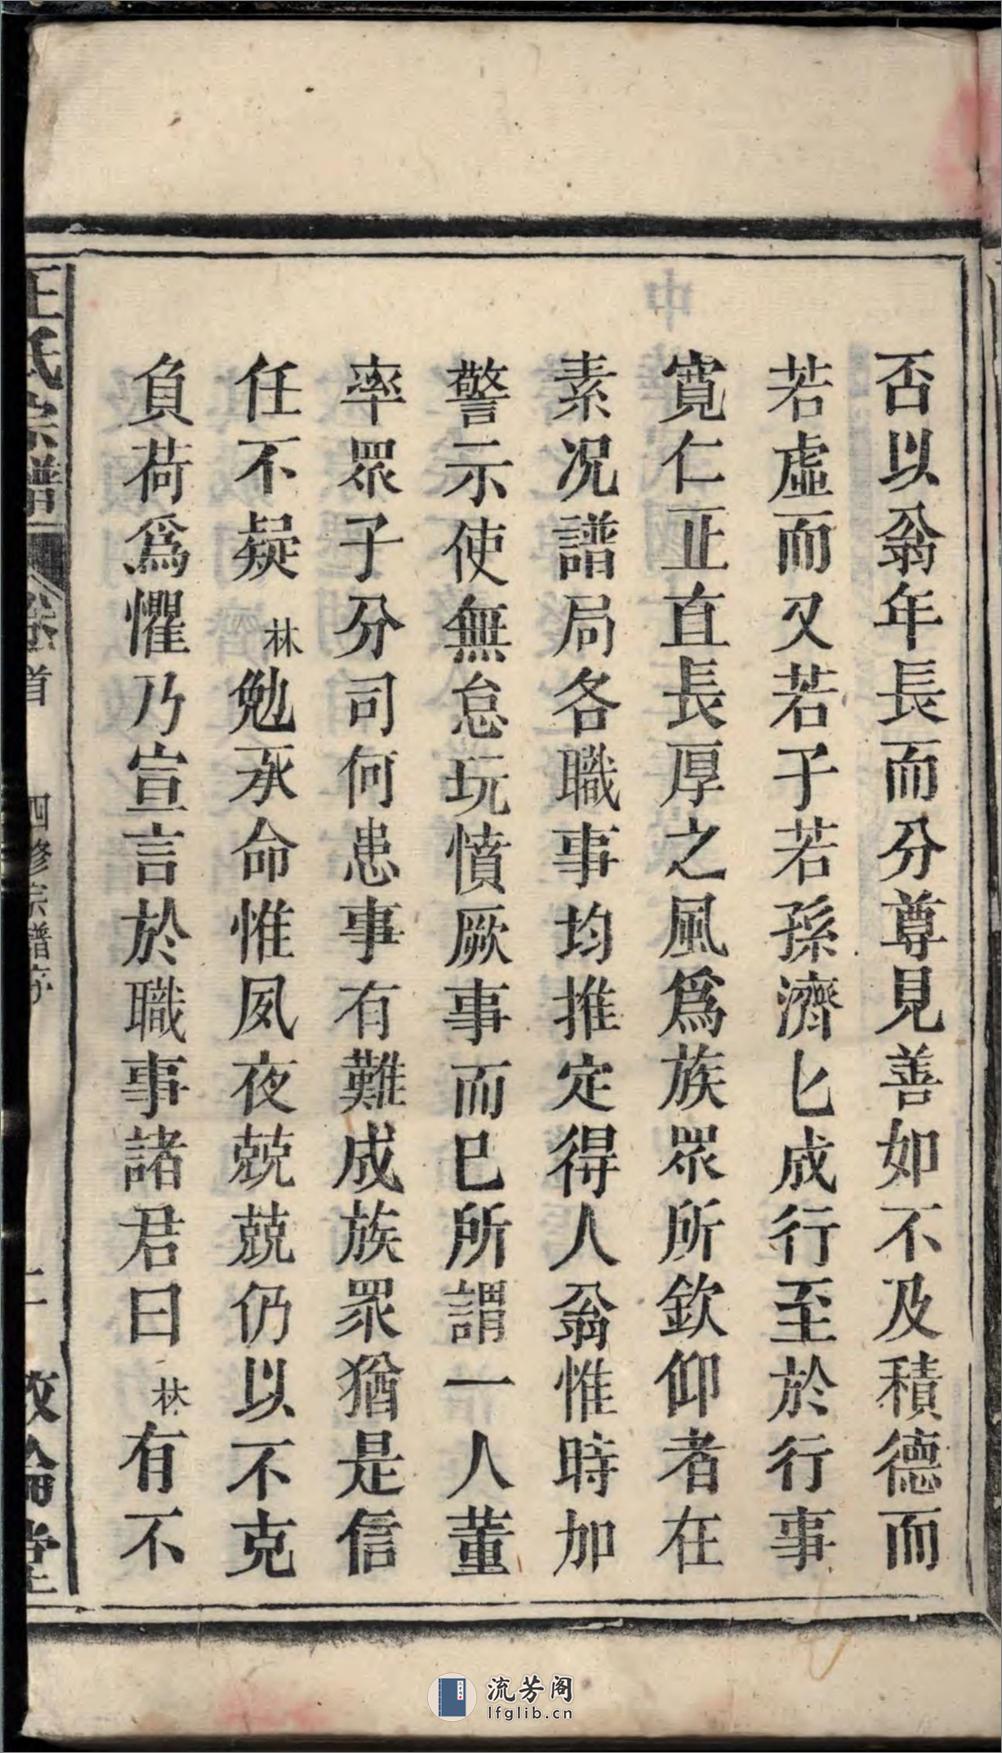 否以翁年長而分尊見善如不及積德而
若虛而又若子若孫濟匕成行至於行事
寬仁正直長厚之風爲族眾所欽仰者在
素况譜局各職事均推定得人翁惟時加
警示使無怠玩憤厥事而已所謂一人董
率眾子分司何患事有難成族眾猶是信
任不疑林勉承命惟夙夜兢兢仍以不克
負荷爲懼乃宣言於職事諸君曰林有不
王氏宗譜 卷首 四修宗譜序 二 敦倫堂
流芳阁
lfglib.cn